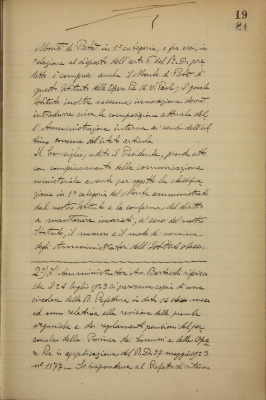 19
Monti di Pietà in 1ª categoria, e fra essi, in
relazione al disposto dell'art. 5 del R. D. pre
detto è compreso anche il Monte di Pietà di
questo Istituto delle Opere Pie di V. Paolo; il quale
Istituto inoltre nessuna innovazione dovrà
introdurre circa la composizione attuale del
l'Amministrazione interna ai sensi dell'ul
timo comma del citato articolo.
Il Consiglio, udito il Presidente, prende atto
con compiacimento della comunicazione
ministeriale avente per oggetto la classifica
zione in 1ª categoria del Monte amministrato
dal nostro Istituto e la conferma del diritto
a mantenere invariati, ai sensi del nostro
Statuto, il numero e il modo di nomina
degli Amministratori dell'Istituto stesso.
2º) L'Amministratore Avv. riferisce
che il 24 luglio 1923 ci pervenne copia d'una
circolare della R. Prefettura in data 16 stesso mese
ed anno relativa alla revisione delle piante
organiche e dei regolamenti pensioni del per
sonale delle Province dei Comuni e delle Ope
re Pie in applicazione del R. D. 27 maggio 1923
nº 1177. – Si rispondeva al Prefetto di